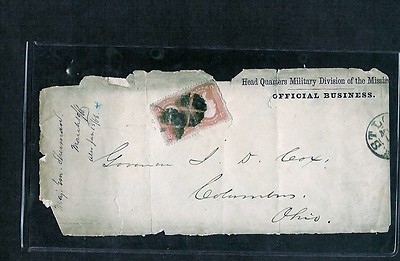 Head Quarters Military Division of the Missis
OFFICIAL BUSINESS.
ST. LO
Governor J. D. Cox,
Columbus,
Ohio.
Maj. Gen. Sherman
March